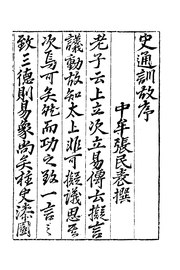 史通訓故序
中牟張民表撰
老子云上立次立易傳云擬言
議動故知太上非可擬議思至
次焉可矣然而功之致一言之
致三德則易象尚矣柱史漆園